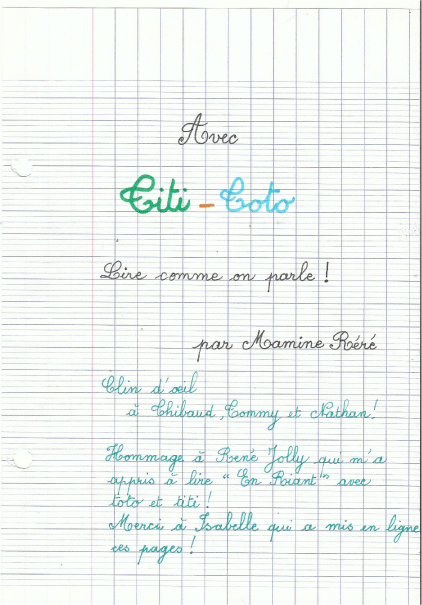 Avec
Titi - Toto
Lire comme on parle !
par Mamine Réré
Clin d'œil
à Thibaud, Tommy et Nathan !
Hommage à René Jolly qui m'a
appris à lire "En Riant" avec
toto et titi !
Merci à Isabelle qui a mis en ligne
ces pages !